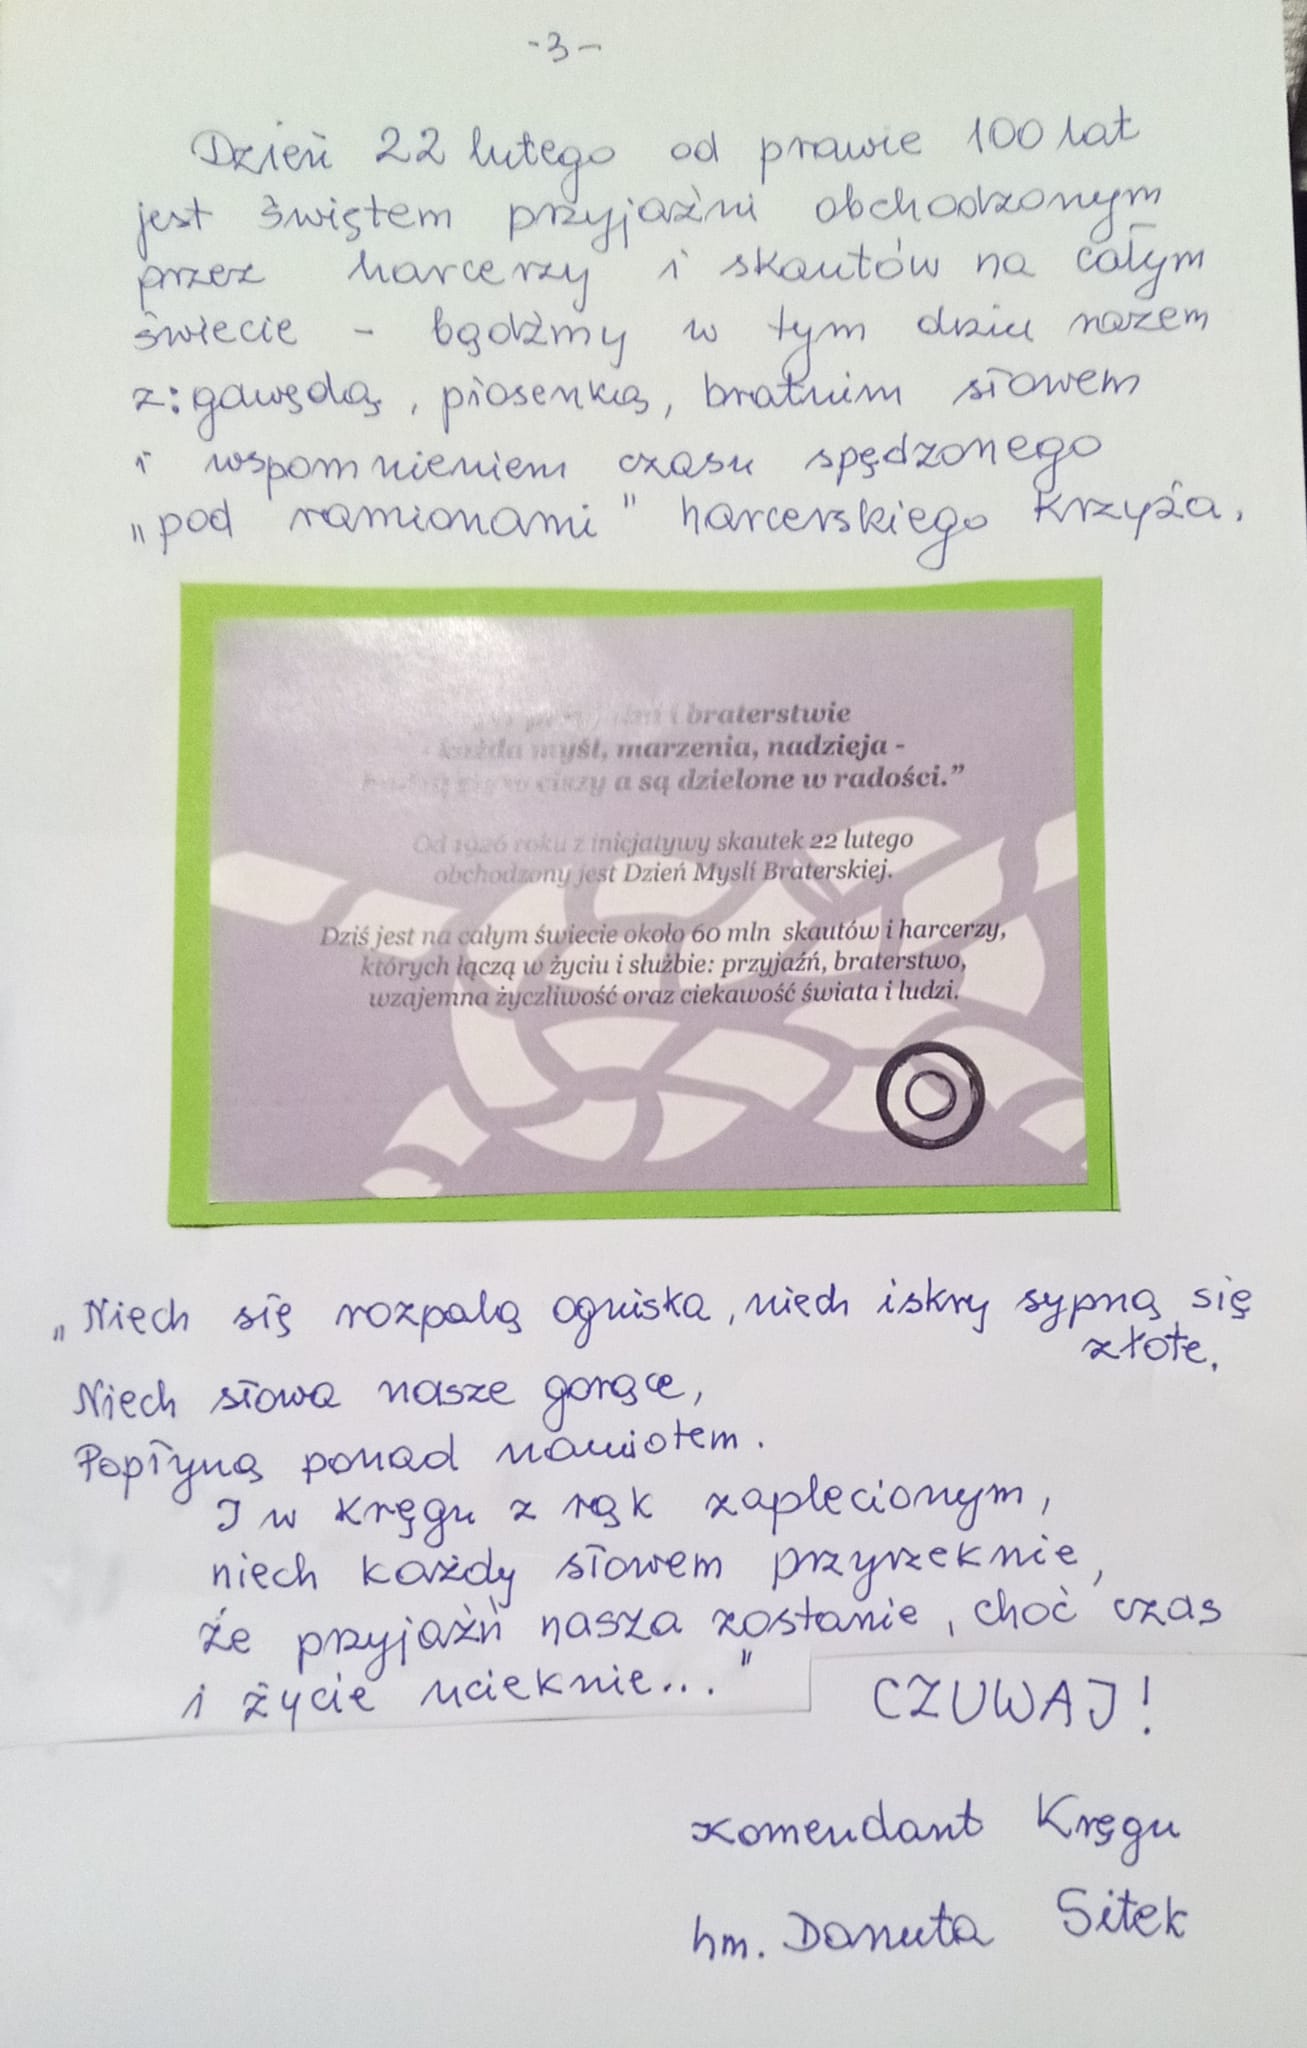 -3-
Dzień 22 lutego od prawie 100 lat
jest świętem przyjaźni obchodzonym
przez harcerzy i skautów na całym
świecie - bądźmy w tym dniu razem
z: gawędą, piosenką, bratnim słowem
i wspomnieniem czasu spędzonego
„pod ramionami" harcerskiego Krzyża.
i braterstwie
każda myśl, marzenia, nadzieja -
ciszy a są dzielone w radości.”
Od 1926 roku z inicjatywy skautek 22 lutego
obchodzony jest Dzień Myśli Braterskiej.
Dziś jest na całym świecie około 60 mln skautów i harcerzy,
których łączą w życiu i służbie: przyjaźń, braterstwo,
wzajemna życzliwość oraz ciekawość świata i ludzi.
„Niech się rozpalą ogniska, niech iskry sypną się
złote.
Niech słowa nasze gorące,
Popłyną ponad namiotem.
I w kręgu z rąk zaplecionym,
niech każdy słowem przyrzeknie,
że przyjaźń nasza zostanie, choć czas
i życie ucieknie..."
CZUWAJ!
Komendant Kręgu
hm. Danuta Sitek